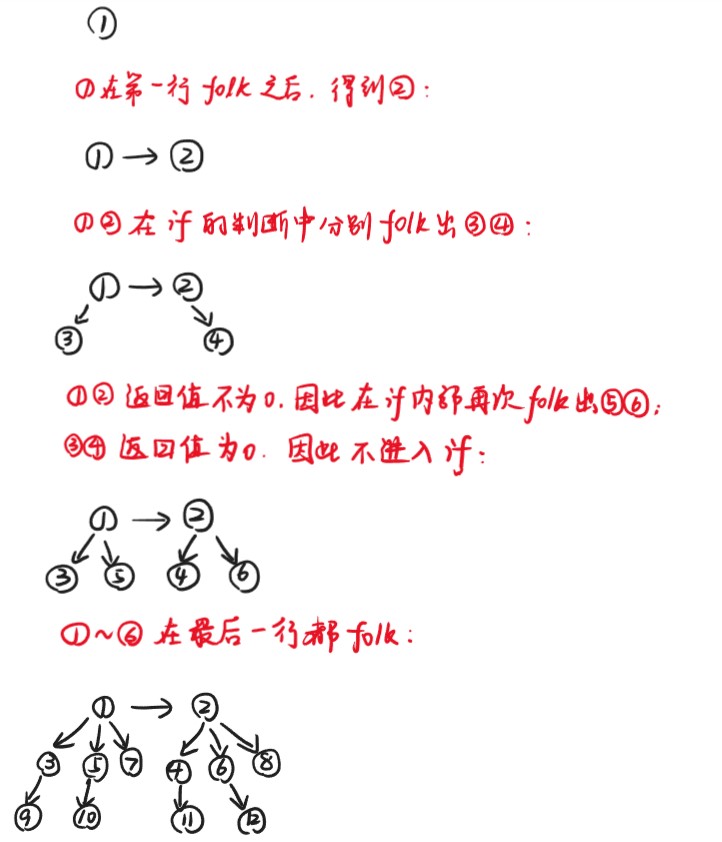 ①
①在第一行 folk 之后. 得到②:
① → ②
①②在 if 的判断中分别 folk 出③④:
① → ②
③ ④
①② 返回值不为0. 因此在 if 内部再次 folk 出⑤⑥;
③④ 返回值为0. 因此不进入 if:
① → ②
③ ⑤ ④ ⑥
①~⑥ 在最后一行都 folk:
① → ②
③ ⑤ ⑦ ④ ⑥ ⑧
⑨ ⑩ ⑪ ⑫